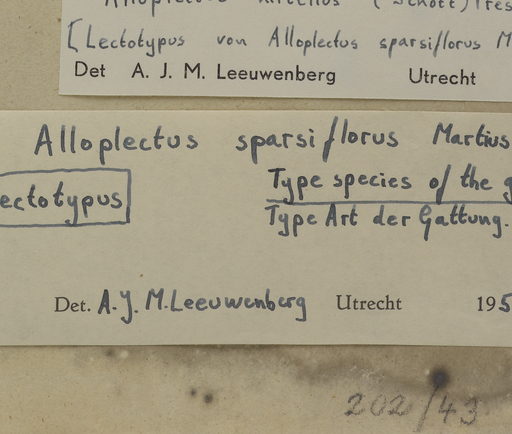 Alloplectus (Schott)
[Lectotypus von Alloplectus sparsiflorus M
Det A. J. M. Leeuwenberg Utrecht
Alloplectus sparsiflorus Martius
ectotypus Type species of the g
Type Art der Gattung.
Det. A. J. M. Leeuwenberg Utrecht 195
202/43